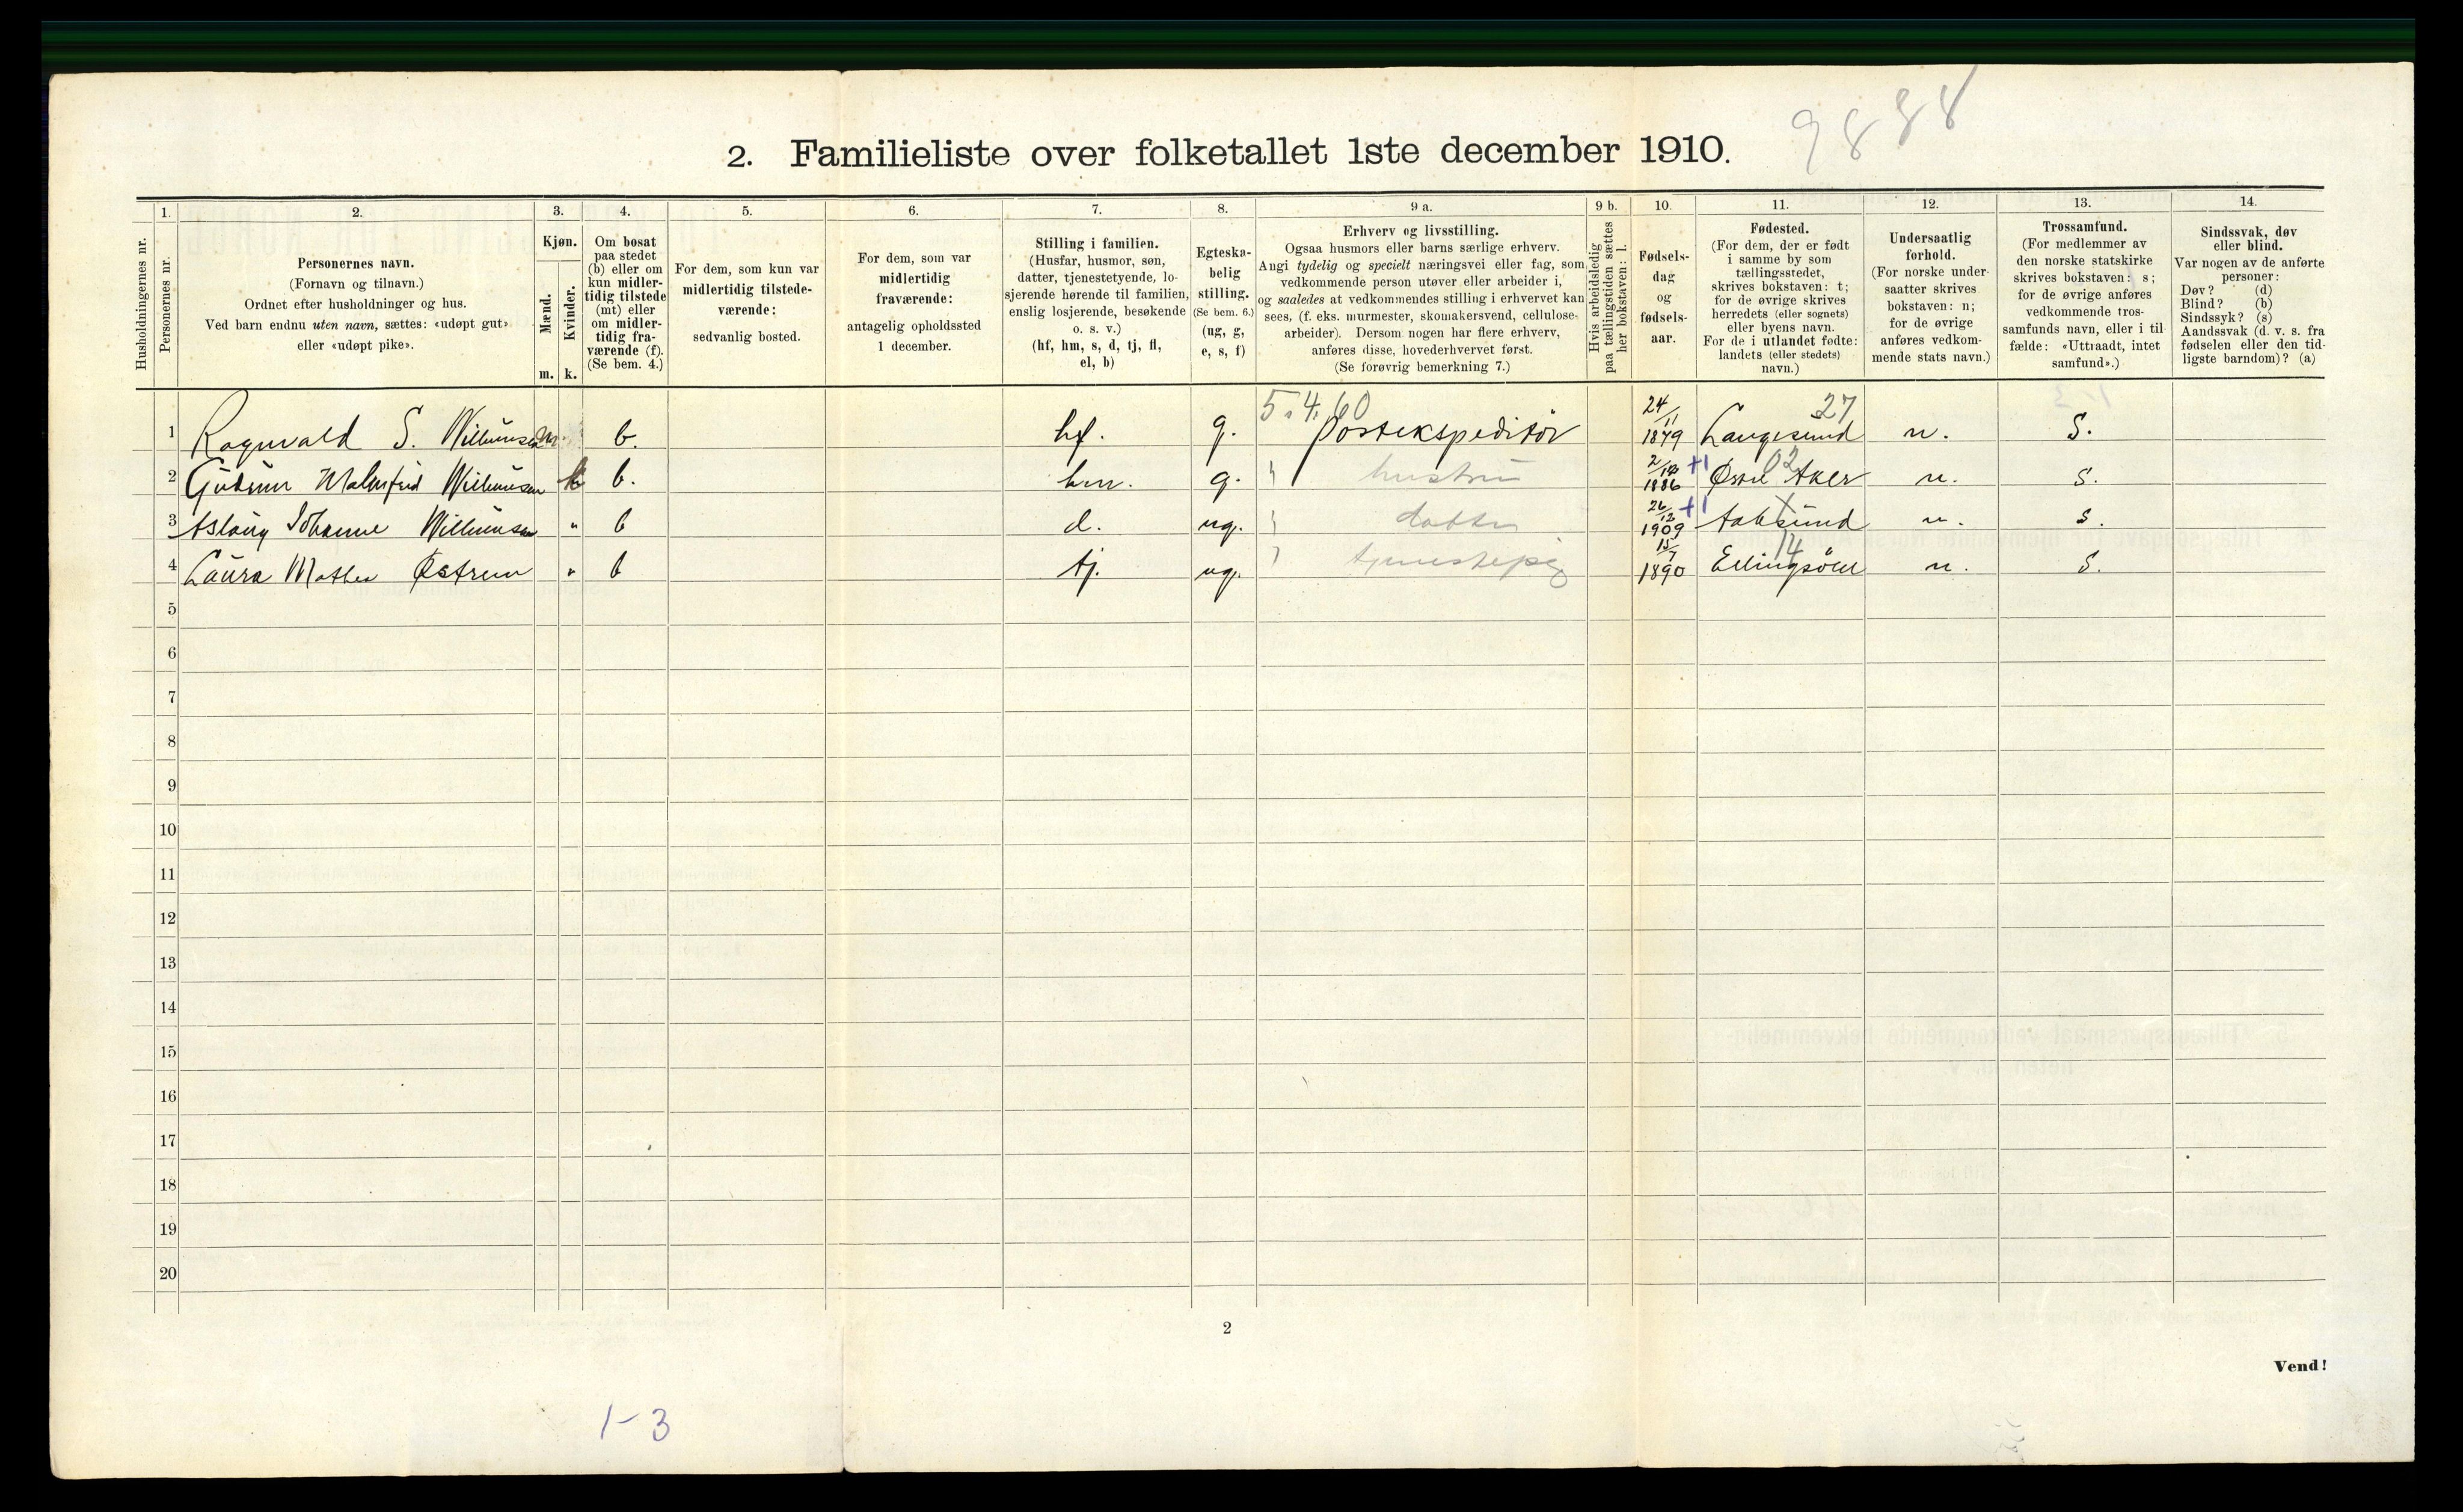 9888
2. Familieliste over folketallet 1ste december 1910.
1. 2. 3. 4. 5. 6. 7. 8. 9 a. 9 b. 10. 11. 12. 13. 14.
Husholdningernes nr.
Personernes nr.
Personernes navn.
(Fornavn og tilnavn.)
Ordnet efter husholdninger og hus.
Ved barn endnu uten navn, sættes: «udøpt gut»
eller «udøpt pike».
Kjøn.
Mænd.
Kvinder.
m. k.
Om bosat
paa stedet
(b) eller om
kun midler-
tidig tilstede
(mt) eller
om midler-
tidig fra-
værende (f).
(Se bem. 4.)
For dem, som kun var
midlertidig tilstede-
værende:
sedvanlig bosted.
For dem, som var
midlertidig
fraværende:
antagelig opholdssted
1 december.
Stilling i familien.
(Husfar, husmor, søn,
datter, tjenestetyende, lo-
sjerende hørende til familien,
enslig losjerende, besøkende
o. s. v.)
(hf, hm, s, d, tj, fl,
el, b)
Egteska-
belig
stilling.
(Se bem. 6.)
(ug, g,
e, s, f)
Erhverv og livsstilling.
Ogsaa husmors eller barns særlige erhverv.
Angi tydelig og specielt næringsvei eller fag, som
vedkommende person utøver eller arbeider i,
og saaledes at vedkommendes stilling i erhvervet kan
sees, (f. eks. murmester, skomakersvend, cellulose-
arbeider). Dersom nogen har flere erhverv,
anføres disse, hovederhvervet først.
(Se forøvrig bemerkning 7.)
Hvis arbeidsledig
paa tællingstiden sættes
her bokstaven: l.
Fødsels-
dag
og
fødsels-
aar.
Fødested.
(For dem, der er født
i samme by som
tællingsstedet,
skrives bokstaven: t;
for de øvrige skrives
herredets (eller sognets)
eller byens navn.
For de i utlandet fødte:
landets (eller stedets)
navn.)
Undersaatlig
forhold.
(For norske under-
saatter skrives
bokstaven: n;
for de øvrige
anføres vedkom-
mende stats navn.)
Trossamfund.
(For medlemmer av
den norske statskirke
skrives bokstaven: s;
for de øvrige anføres
vedkommende tros-
samfunds navn, eller i til-
fælde: «Uttraadt, intet
samfund».)
Sindssvak, døv
eller blind.
Var nogen av de anførte
personer:
Døv? (d)
Blind? (b)
Sindssyk? (s)
Aandssvak (d. v. s. fra
fødselen eller den tid-
ligste barndom)? (a)
5.4.60 24/11 27
1 Ragnvald S. Willumsen m. b. hf. g. Postekspeditør 1879 Langesund n. S.
2/12 +1 02
2 Gudrun Malmfrid Willumsen k b. hm. g. " hustru 1886 Østre Aker n. s.
26/12 +1
3 Aslaug Johanne Willumsen " b d. ug. " datter 1909 n. s.
15/7 14
4 Laura Mathea Østrem " b tj. ug. " tjenestepige 1890 Ellingsöen n. S.
5
6
7
8
9
10
11
12
13
14
15
16
17
18
19
20
2
Vend!
1-3